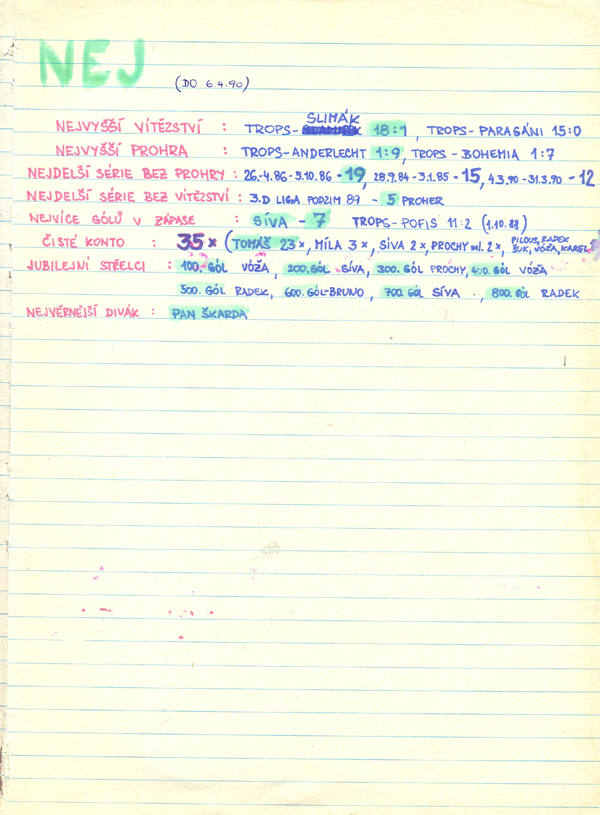 NEJ (DO 6.4.90)
SLIMÁK
NEJVYŠŠÍ VÍTĚZSTVÍ : TROPS- 18:1, TROPS-PARAGÁNI 15:0
NEJVYŠŠÍ PROHRA : TROPS-ANDERLECHT 1:9, TROPS-BOHEMIA 1:7
NEJDELŠÍ SÉRIE BEZ PROHRY : 26.4.86-5.10.86-19, 28.9.84-3.1.85-15, 4.3.90-31.3.90-12
NEJDELŠÍ SÉRIE BEZ VÍTĚZSTVÍ : 3.D LIGA PODZIM 87 - 5 PROHER
NEJVÍCE GÓLŮ V ZÁPASE : SÍVA - 7 TROPS-POFIS 11:2 (1.10.88)
ČISTÉ KONTO : 35x (TOMÁŠ 23x, MÍLA 3x, SÍVA 2x, PROCHY ml. 2x, PILOUS, RADEK
ŠUK, VÓŽA, KAREL)
JUBILEJNÍ STŘELCI : 100. GÓL VÓŽA, 200. GÓL SÍVA, 300. GÓL PROCHY, 400. GÓL VÓŽA
500. GÓL RADEK, 600. GÓL-BRUNO, 700. GÓL SÍVA, 800. GÓL RADEK
NEJVĚRNĚJŠÍ DIVÁK : PAN ŠKARDA